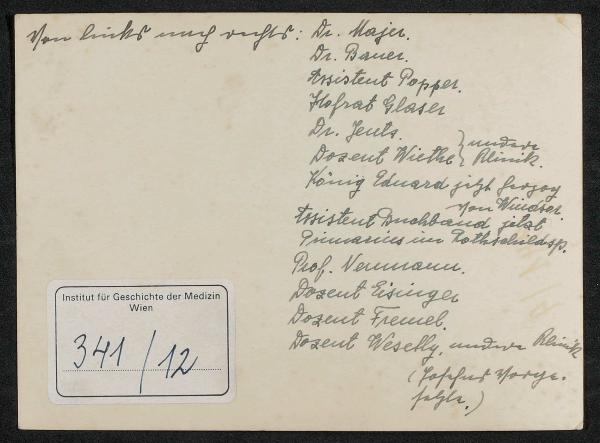 Von links nach rechts: Dr. Majer.
Dr. Bauer.
Assistent Popper.
Hofrat Glaser
Dr. Jents.
Dozent Wiethe } andere Klinik.
König Eduard jetzt Herzog
von Windsor.
Assistent Duchband jetzt
Primarius im Rothschildsp.
Prof. Neumann.
Dozent Eisinger
Dozent Fremel.
Dozent Wesselky, andere Klinik
(Josefus Vorge-
setzte.)
Institut für Geschichte der Medizin
Wien
341/12